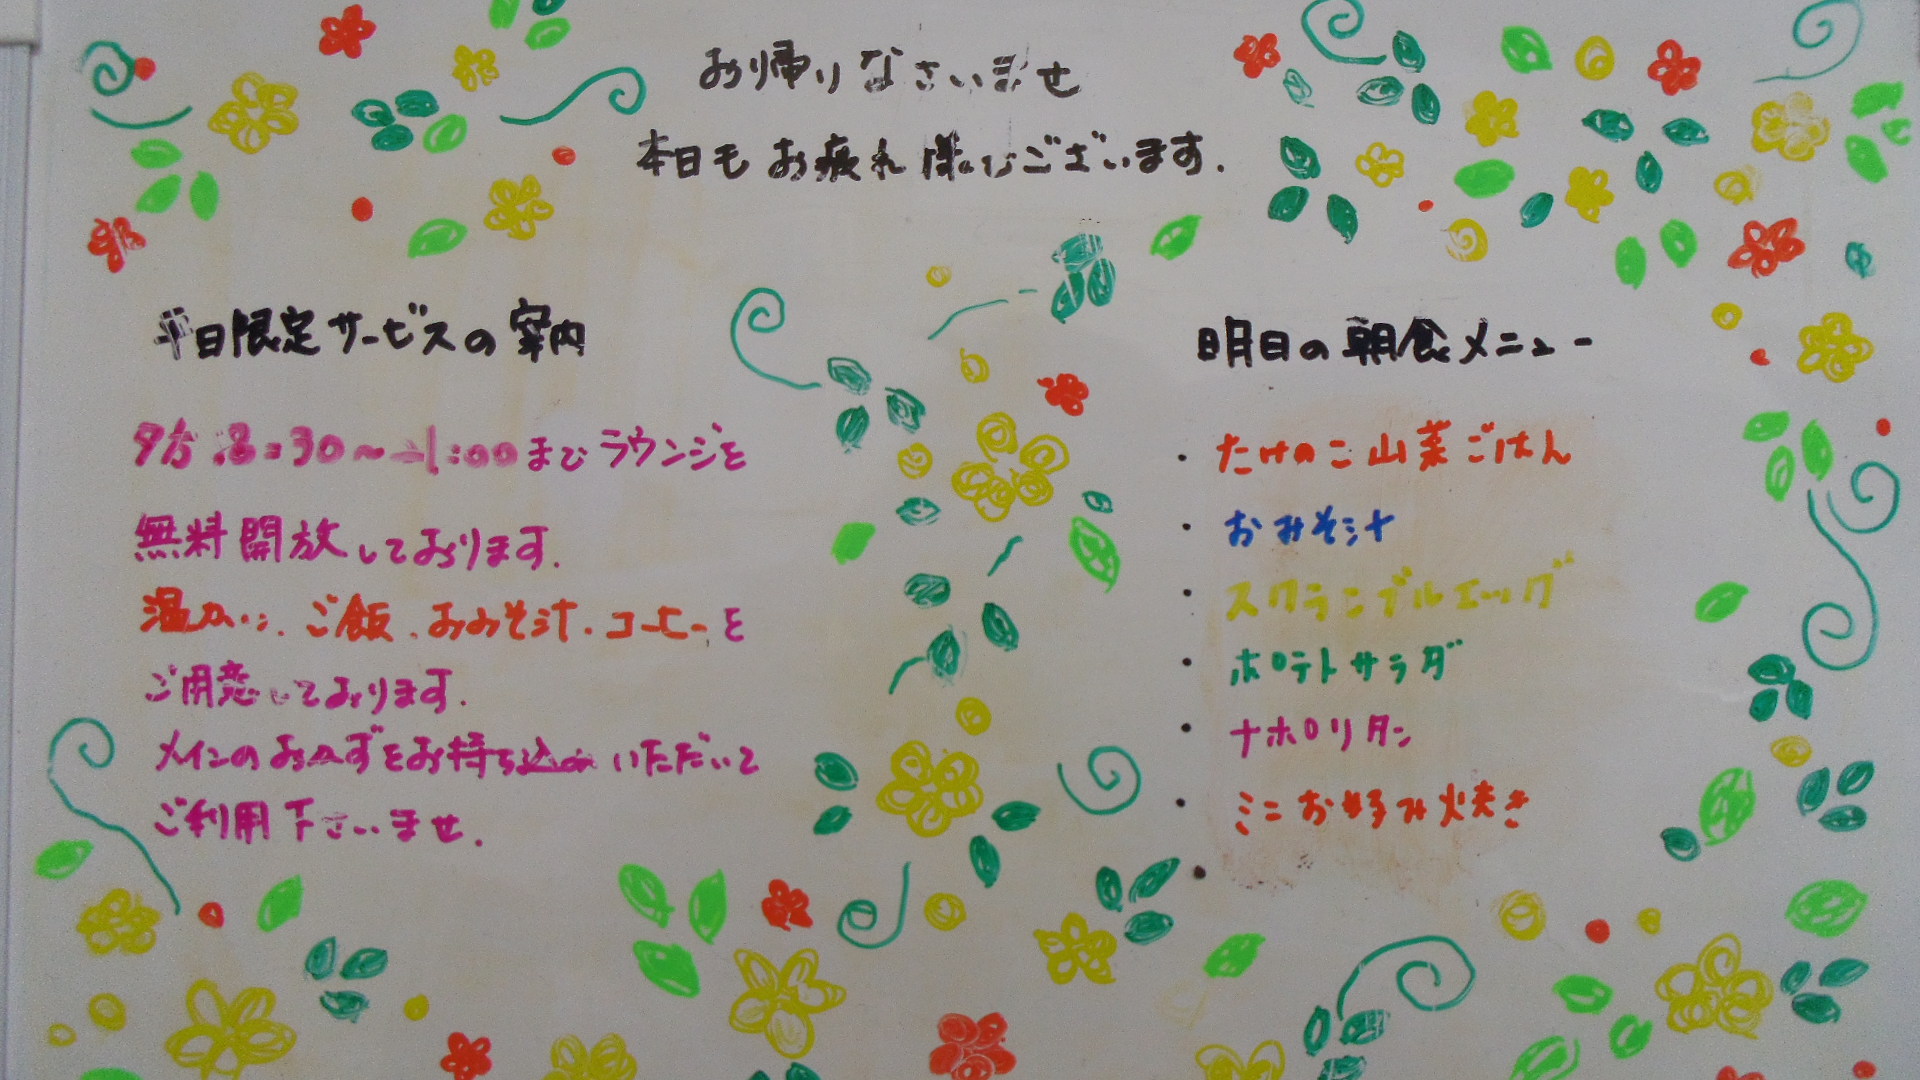 お帰りなさいませ
本日もお疲れ様でございます.
平日限定サービスの案内
夕方 :8:30〜11:00までラウンジを
無料開放しております.
温かい、ご飯、おみそ汁、コーヒーを
ご用意しております.
メインのおかずをお持ち込みいただいて
ご利用下さいませ.
明日の朝食メニュー
・たけのこ山菜ごはん
・おみそ汁
・スクランブルエッグ
・ポテトサラダ
・ナポリタン
・ミニお好み焼き
・